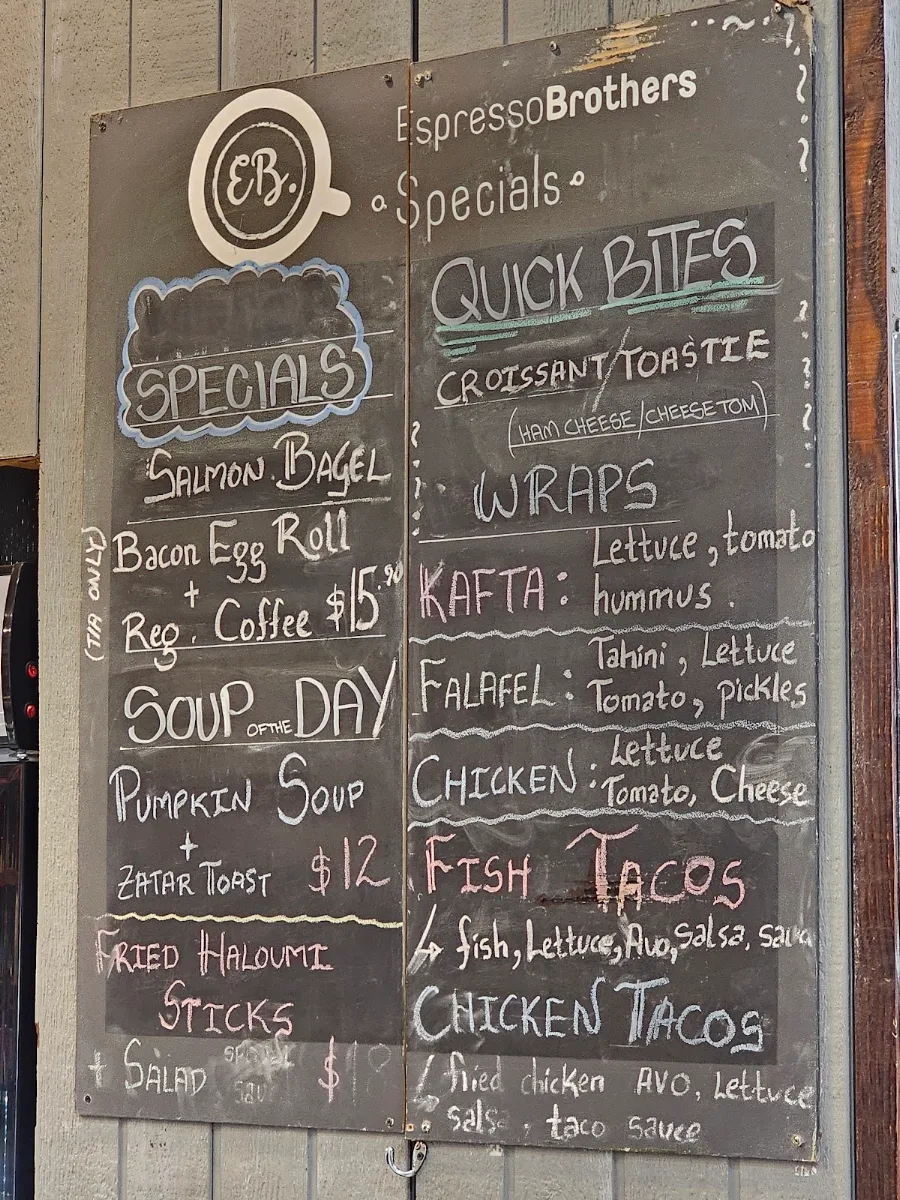 EB.
EspressoBrothers
Specials
SPECIALS
SALMON BAGEL
Bacon Egg Roll
+
Reg. Coffee $15.90
(T/A ONLY)
SOUP OF THE DAY
PUMPKIN SOUP
+
ZATAR TOAST $12
FRIED HALOUMI
STICKS
+ SALAD $18
QUICK BITES
CROISSANT/TOASTIE
(HAM CHEESE/CHEESE TOM)
WRAPS
KAFTA: Lettuce, tomato
hummus.
FALAFEL: Tahini, Lettuce
Tomato, pickles
CHICKEN: Lettuce
Tomato, Cheese
FISH TACOS
↳ fish, Lettuce, Avo, Salsa,
CHICKEN TACOS
↳ fried chicken AVO, Lettuce
salsa, taco sauce